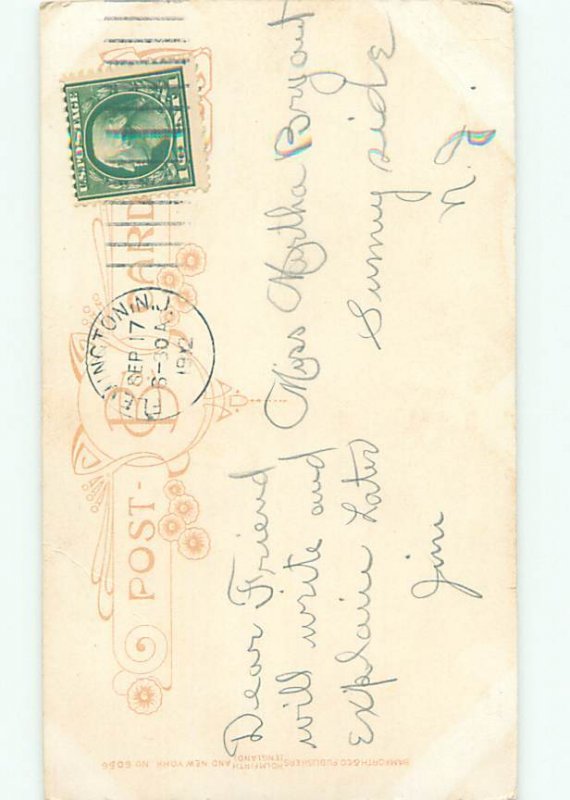 POST-CARD
B
U.S. POSTAGE
1 CENT 1
N.J.
SEP 17
6-30A
1912
Dear Friend
will write and
explain Later
Jim
Miss Myrtha Bryant
Sunny side
N. J.
BAMFORTH & CO PUBLISHERS HOLMFIRTH
(ENGLAND)
AND NEW YORK NO 6086